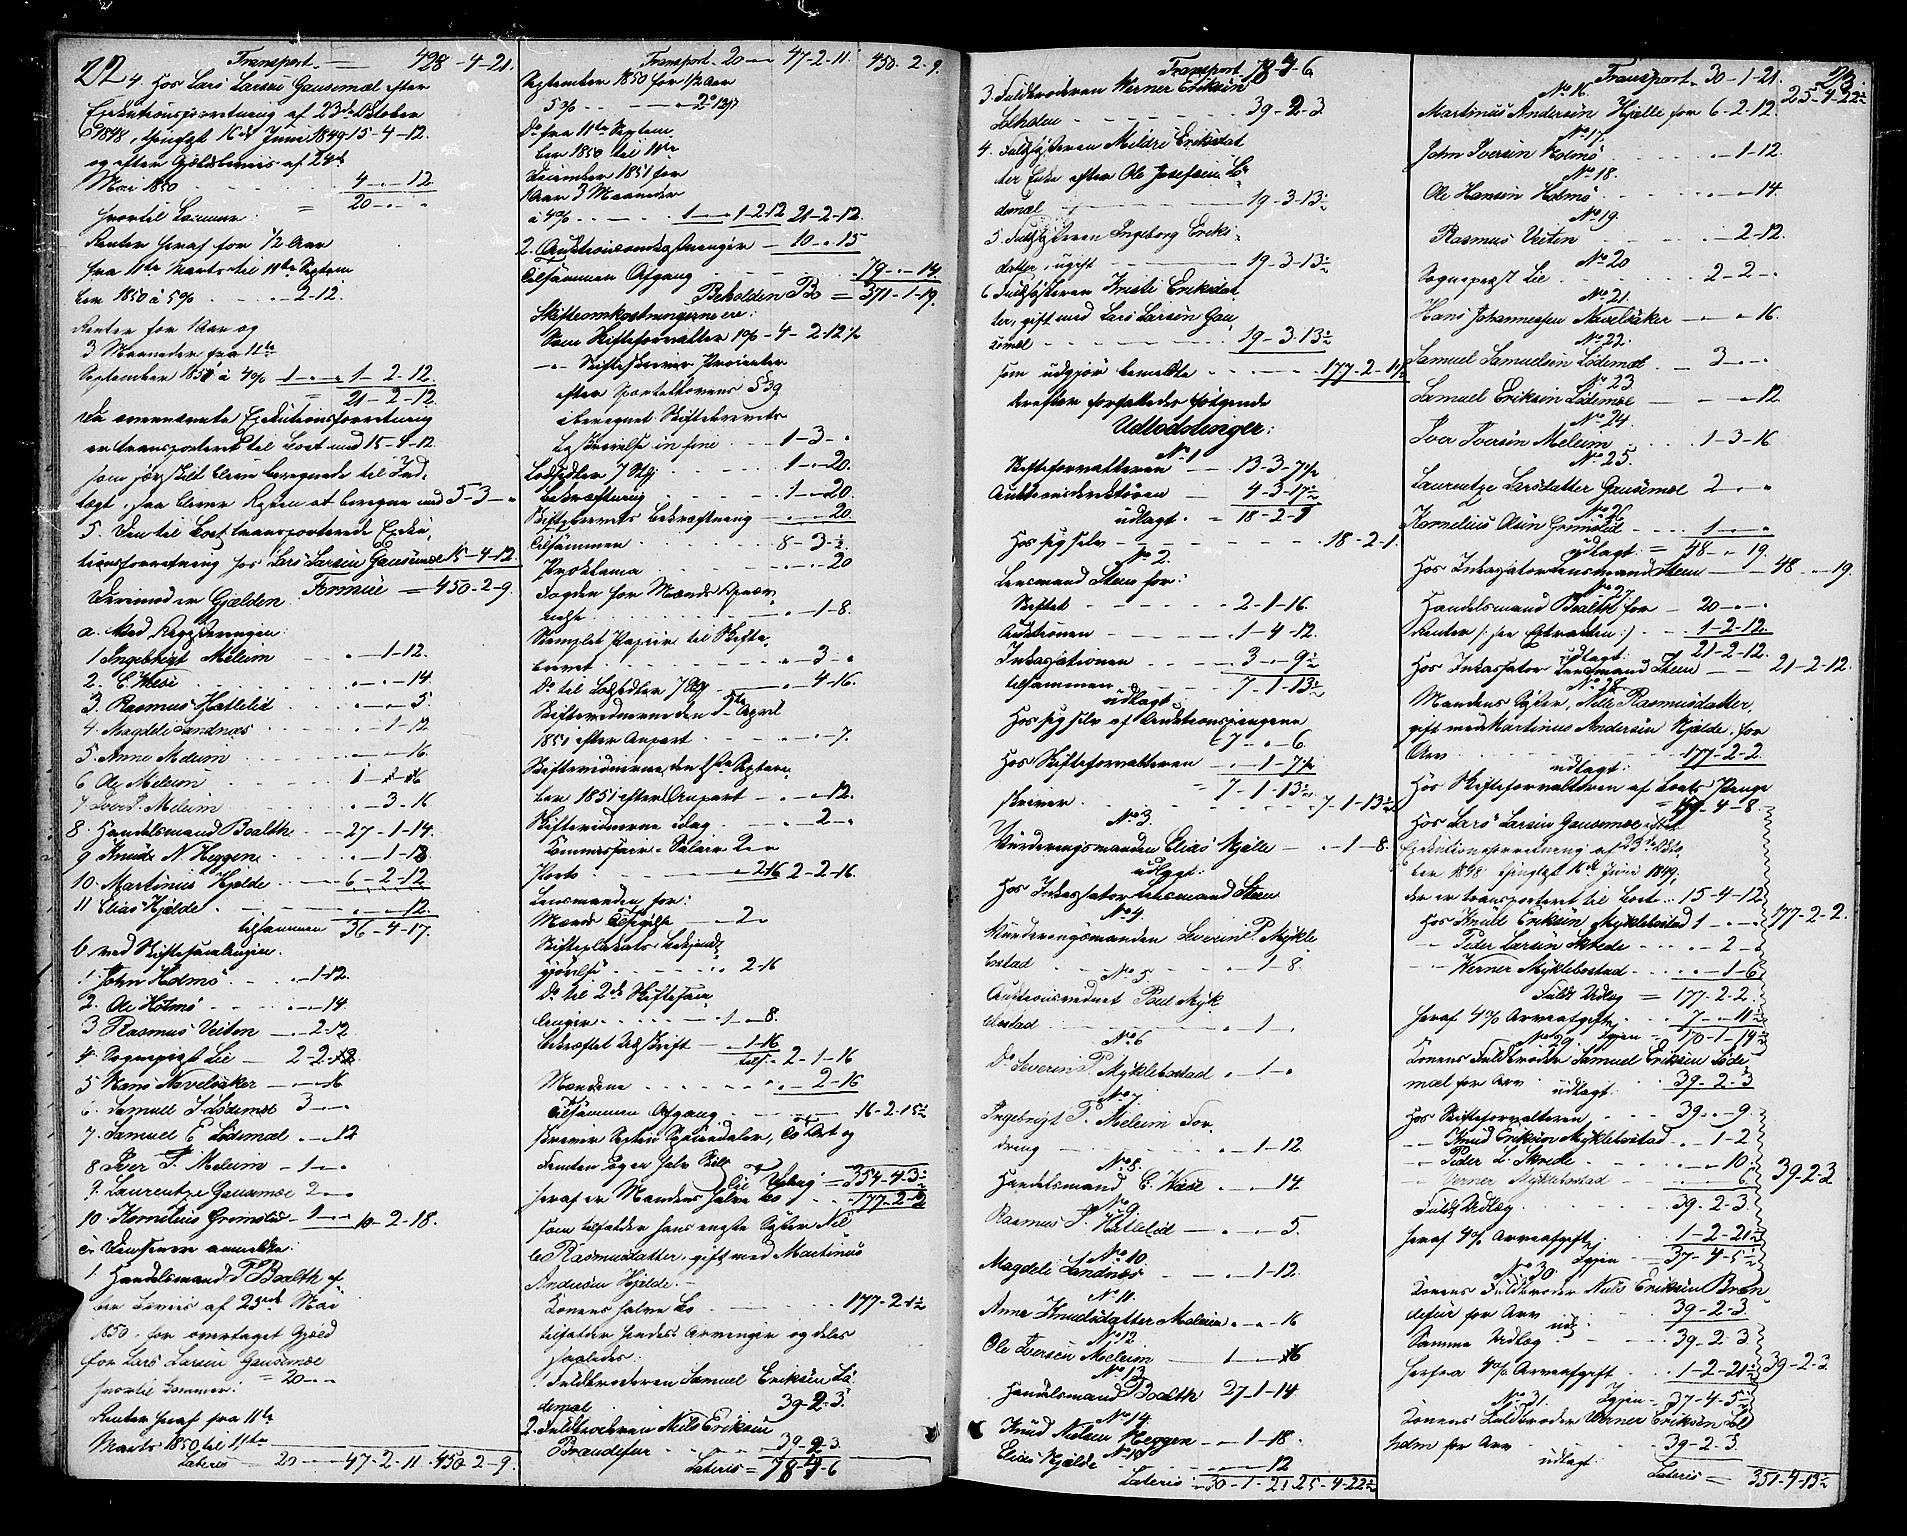 22
Transport — 428-4-21.
4. Hos Lars Larsen Gausemæl efter
Executionsforretning af 23de October
1848, thinglyst 16de Juni 1849 15-4-12.
og efter Gjeldsbeviis af 24de
Mai 1850 4-"-12
= 20-"-"
hvortil kommer:
Renter heraf for 1/2 Aar
fra 11te Marts til 11te Septem
ber 1850 à 5% 2-12.
Renter for 1 Aar og
3 Maaneder fra 11te
September 1850 à 4% 1-"-" 1-2-12.
= 21-2-12.
Da ovennævnte Executionsforretning
er transporteret til Boet med 15-4-12
som for skilt bliver beregnede til Ind-
tægt, saa bliver Resten at beregne med 5-3-"
5. Den til Boet transporterede Execu
tionsforretning hos Lars Larsen Gausemæl 15-4-12.
Formue = 450-2-9.
Derimod er Gjælden
a. Ved Registreringen:
1 Ingebrigt Meleim "-1-12.
2. C. Weise "-"-14.
3. Rasmus Hatlelid "-"-5
4. Magdeli Sandnæs "-1-12
5. Anne Meleim "-"-16.
6 Ole Meleim 1-"-16
7. Iver I. Meleim "-3-16
8. Handelsmand Boalth 27-1-14.
9 Knud N. Heggen "-1-18.
10. Martinus Hjelde 6-2-12
11 Elias Hjelde "-"-12.
tilsammen 36-4-17.
b. ved Skiftesamlingen.
1. John Holmø "-1-12.
2. Ole Holmø "-"-14.
3 Rasmus Veiten "-2-12
4. Sogneprest Lie 2-2-"
5 Hans Navelsaker "-"-16
6. Samuel S. Lødemæl 3-"-"
7. Samuel E. Lødemæl "-"-12
8 Iver I. Meleim -1-"-"
9. Laurentze Gausemæl 2-"-"
10 Kornelius Grimstad -1-"-" 10-2-18.
c. Desuden anmeldte:
1. Handelsmand F. Boalth ef-
ter Beviis af 25de Mai
1850. for overtaget Gjæld
for Lars Larsen Gausemæl
= 20-"-"
hvortil kommer:
Renter heraf fra 11te
Marts 1850 til 11te
Lateris = 20-"-" 47-2-11. 450-2-9.
Transport. 20-"-" 47-2-11. 450.-2-9.
September 1850 for 1/2 Aar
5%
Do fra 11te Septem
ber 1850 til 11te
December 1851 for
1 Aar 3 Maaneder
à 4% 1-"-" 1-2-12 21-2-12.
2. Auktionsomkostninger 10-"-15
Tilsammen Afgang 79-"-14.
Beholden Bo = 371-1-19.
Skifteomkostningerne ere:
Som Skifteforvalter 1% 4-2-12 1/2
— Skifteskriver Procenter
efter Sportellovens § 39
iberegnet Skiftebrevets
Beskrivelse in fine 1-3-"
Lodsedler 7 Stk 1-"-20.
Bekræftning 1-"-20.
Skiftebrevets Bekræftning "-"-20.
Tilsammen 8-3-1/2
Proklama "-"-20
Dagden for Mænds Opnæv
nelse "-1-8.
Stemplet Papiir til Skifte
brevet "-3-"
Do til Lodsedler 7 Stk "-4-16.
Skiftevidnerne den 5te April
1851 efter Anpart "-"-7.
Skiftevidnerne den 1ste Septem
ber 1851 efter Anpart "-"-12.
Skiftevidnerne idag "-2-"
Kommissair Salair 2-"-"
Porto "-2-16 2-2-16.
Lensmanden for:
Mænds Tilsigelse 2-"
Skifteplakaters bekjendt
gjørelse 2-16
Do til 2de Skiftesam
linger "-1-8.
Bekræftet Udskrift "-1-16
tils. 2-1-16
Mændene "-2-16
Tilsammen Afgang 16-2-15 1/2
skriver Sexten Speciedaler, to Ort og
Femten og en halv Skill
til Udlæg = 354-4-3 1/2
heraf er Mandens halve Bo 177-2-2
som tilfalder hans eneste Søster Nil
le Rasmusdatter, gift med Martinus
Andersen Hjelde. —
Konens halve Bo 177-2-1 1/2
tilfalder hendes Arvinger og deles
saaledes:
1. Fuldbroderen Samuel Eriksen Lø
demæl 39-2-3.
2. Fuldbroderen Nils Eriksen
Brandefur 39-2-3.
Lateris = 78-4-6
Transport 78-4-6
3 Fuldbroderen Werner Eriksen
Solholm 39-2-3.
4. Fuldsøsteren Mildri Eriksdat
ter Enke efter Ole Josefsen Lø
demæl 19-3-13 1/2
5. Fuldsøsteren Ingeborg Eriks-
datter, ugift 19-3-13 1/2
6 Fuldsøsteren Kristi Eriksdat
ter, gift med Lars Larsen Gau
semæl 19-3-13 1/2
som udgjør bemeldte 177-2-1 1/2
Derefter forfattedes følgende
Udlodninger:
No 1
Skifteforvalteren 13-3-7 1/2
Auktionsdirektøren 4-3-17 1/2
udlagt. = 18-2-1
Hos sig selv 18-2-1.
No 2.
Lensmand Steen for:
Skiftet 2-1-16.
Auktionen 1-4-12.
Inkassationen 3-"-9 1/2
tilsammen 7-1-13 1/2
udlagt
Hos sig selv af Auktionspengene
7-"-6.
Hos Skifteforvalteren "-1-7 1/2
= 7-1-13 1/2
skriver 7-1-13 1/2
No 3.
Vurderingsmanden Elias Hjelle "-1-8.
udlagt.
Hos Inkassator Lensmand Steen
No 4.
Vurderingsmanden Severin P. Mykle
bostad "-1-8.
No 5
Auktionsvidnet Paul Myk
lebostad "-1-"
No 6
Do Severin P. Myklebostad "-1-"
No 7.
Ingebrigt P. Meleim For-
dring "-1-12
No 8.
Handelsmand C. Weise "-"-14.
No 9.
Rasmus P. Hatlelid "-"-5.
No 10.
Magdeli Sandnæs "-1-12.
No 11.
Anne Knudsdatter Meleim "-"-16
No 12
Ole Iversen Meleim 1-"-16
No 13
Handelsmand Boalth 27-1-14.
No 14
Knud Nielsen Heggen "-1-18.
No 15
Elias Hjelde "-"-12
Lateris -30-1-21. 25-4-22 1/2
23
Transport 30-1-21. 25-4-22 1/2
No 16.
Martinus Andersen Hjelle for 6-2-12.
No 17
John Iversen Holmø "-1-12.
No 18.
Ole Hansen Holmø "-"-14.
No 19.
Rasmus Veiten "-2-12.
No 20
Sogneprest Lie 2-2-"
No 21.
Hans Johannessen Navelsaker "-"-16.
No 22.
Samuel Samuelsen Lødemæl 3-"-"
No 23
Samuel Eriksen Lødemæl "-"-12
No 24.
Iver Iversen Meleim 1-3-16
No 25.
Laurentze Larsdatter Gausemæl 2-"-"
No 26.
Kornelius Grimstad 1-"-"
udlagt: = 48-"-19.
Hos Inkassator Lensmand Steen 48-"-19.
No 27.
Handelsmand Boalth for 20-"-"
Renter /: see Extrakten :/ 1-2-12.
udlagt: 21-2-12.
Hos Inkassator Lensmand Steen 21-2-12.
No 28.
Mandens Søster, Nille Rasmusdatter,
gift med Martinus Andersen Hjelde, for
Arv 177-2-2.
udlagt:
Hos Skifteforvalteren af Boets Penge
Hos Lars Larsen Gausemæl efter
Executionsforretning af 23de Octo
ber 1848 thinglyst 16de Juni 1849,
der er transporteret til Boet 15-4-12
Hos Knud Eriksen Myklebostad 1-"-" 177-2-2.
— Peder Larsen Skrede "-2-"
— Werner Myklebostad "-1-6
Fuldt Udlæg = 177-2-2.
heraf 4% Arveafgift 7-"-11 1/2
No 29. igjen = 170-1-14 1/2
Konens Fuldbroder Samuel Eriksen Løde
mæl for Arv 39-2-3
udlagt:
Hos Skifteforvalteren 39-"-9.
— Knud Eriksen Myklebostad "-1-2
— Peder L. Skrede "-"-10.
— Werner Myklebostad "-"-6. 39-2-3
Fuldt Udlæg 39-2-3.
heraf 4% Arveafgift 1-2-21 1/2
igjen = 37-4-5 1/2
No 30.
Konens Fuldbroder Niels Eriksen Bran
defur for Arv 39-2-3.
udl:
Samme Udlæg 39-2-3.
herfra 4% Arveafgift 1-2-21 1/2 39-2-3.
No 31. Igjen = 37-4-5 1/2
Konens Fuldbroder Werner Eriksen Sol
holm for Arv 39-2-3.
udlagt:
Lateris = 351-4-13 1/2